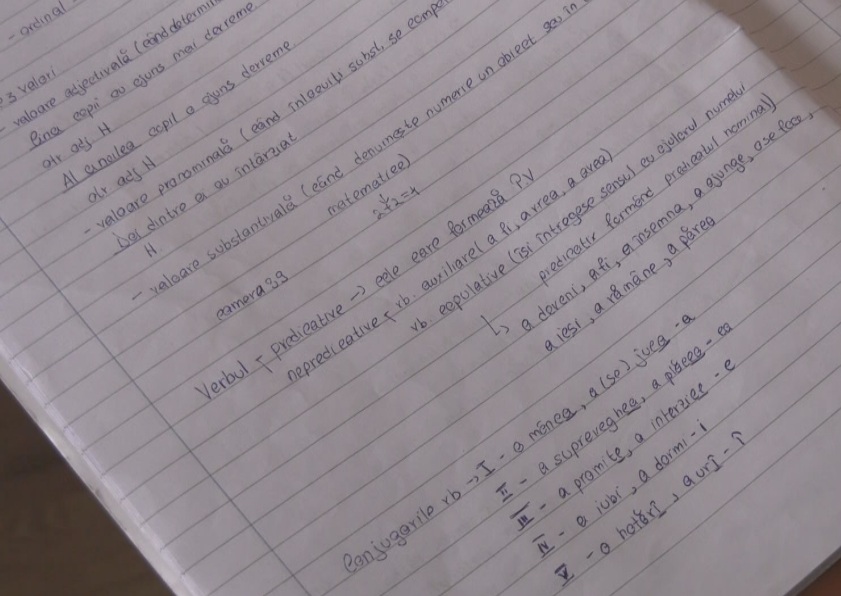 - ordinal
3 valori
- valoare adjectivală (când determin
Cinci copii au ajuns mai devreme
atr adj N
Al cincilea copil a ajuns devreme
atr adj N
- valoare pronominală (când înlocuieşte subst, se compor
Doi dintre ei au întârziat
N
- valoare substantivală (când denumeşte numeric un obiect sau în
matematică)
2+2=4
camera 33
Verbul predicative -> cele care formează P.V
nepredicative - vb. auxiliare( a fi, a vrea, a avea)
vb. copulative (îşi întregesc sensul cu ajutorul numelui
predicativ formând predicatul nominal)
↳ a deveni, a fi, a însemna, a ajunge, a se face,
a ieşi, a rămâne, a părea
Conjugările vb -> I - a mânca, a (se) juca - a
II - a supraveghea, a plăcea - ea
III - a promite, a interzice - e
IV - a iubi, a dormi - i
V - a hotărî, a urî - î